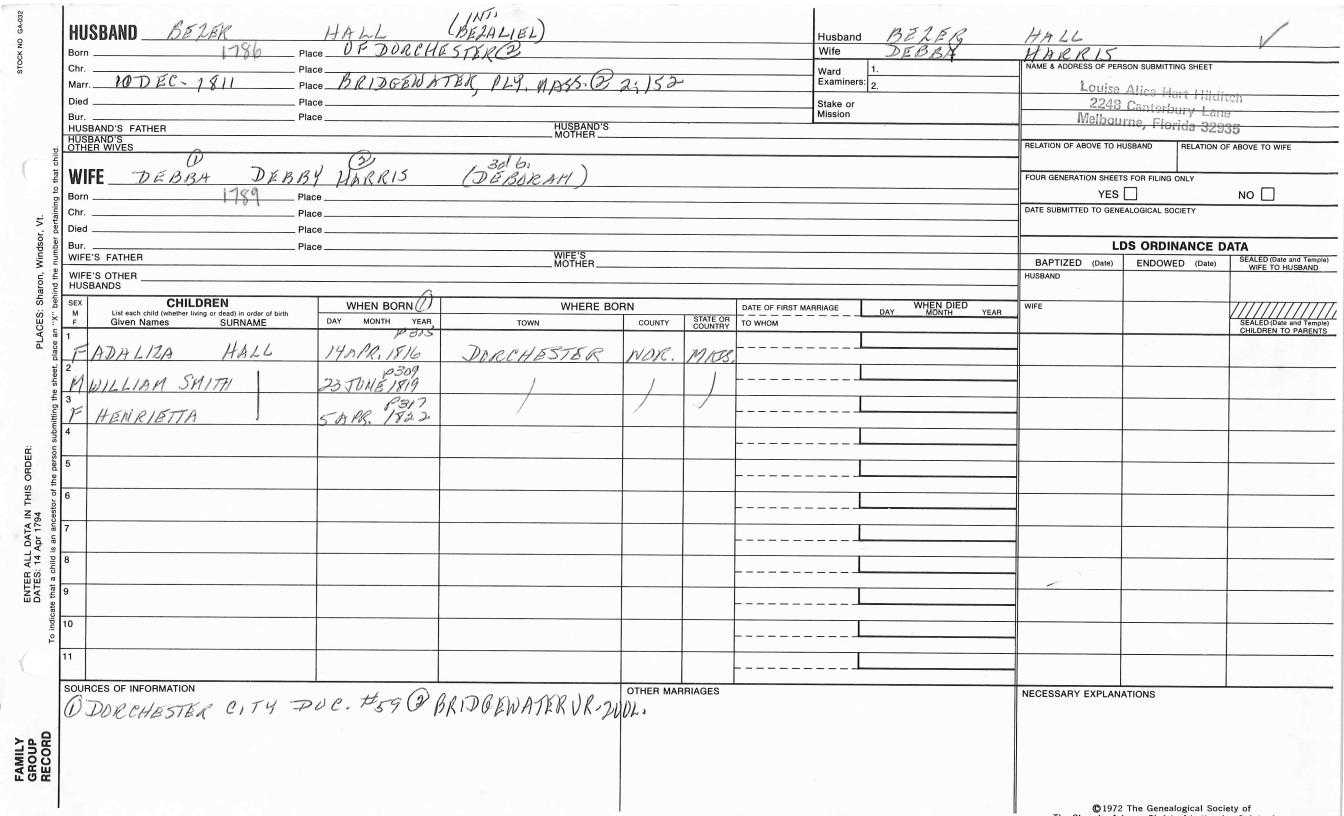 STOCK NO GA-032
HUSBAND BEZER HALL (INT. BEZALIEL)
Born 1786 Place OF DORCHESTER ②
Chr. Place
Marr. 10 DEC - 1811 Place BRIDGEWATER, PLY. MASS. ② 2:152
Died Place
Bur. Place
HUSBAND'S FATHER HUSBAND'S MOTHER
HUSBAND'S OTHER WIVES
WIFE DEBBA ① DEBBY ② HARRIS 3d b. (DEBORAH)
Born 1789 Place
Chr. Place
Died Place
Bur. Place
WIFE'S FATHER WIFE'S MOTHER
WIFE'S OTHER HUSBANDS
Husband BEZER HALL
Wife DEBBA HARRIS
Ward Examiners: 1. 2.
Stake or Mission
NAME & ADDRESS OF PERSON SUBMITTING SHEET
Louise Alice Hart Hilditch
2248 Canterbury Lane
Melbourne, Florida 32935
RELATION OF ABOVE TO HUSBAND RELATION OF ABOVE TO WIFE
FOUR GENERATION SHEETS FOR FILING ONLY
YES NO
DATE SUBMITTED TO GENEALOGICAL SOCIETY
LDS ORDINANCE DATA
BAPTIZED (Date) ENDOWED (Date) SEALED (Date and Temple) WIFE TO HUSBAND
HUSBAND
WIFE
SEALED (Date and Temple) CHILDREN TO PARENTS
SEX M F CHILDREN List each child (whether living or dead) in order of birth Given Names SURNAME
WHEN BORN ① DAY MONTH YEAR
WHERE BORN TOWN COUNTY STATE OR COUNTRY
DATE OF FIRST MARRIAGE TO WHOM
WHEN DIED DAY MONTH YEAR
1 F ADALIZA HALL 14 APR. 1816 DORCHESTER NOR. MASS.
2 M WILLIAM SMITH | 23 JUNE 1819 P309
3 F HENRIETTA 5 APR. 1822 P317
4
5
6
7
8
9
10
11
SOURCES OF INFORMATION
① DORCHESTER CITY DOC. #59 ② BRIDGEWATER VR-2VOL.
OTHER MARRIAGES
NECESSARY EXPLANATIONS
©1972 The Genealogical Society of
PLACES: Sharon, Windsor, Vt.
ENTER ALL DATA IN THIS ORDER:
DATES: 14 Apr 1794
To indicate that a child is an ancestor of the person submitting the sheet, place an "X" behind the number pertaining to that child.
FAMILY
GROUP
RECORD